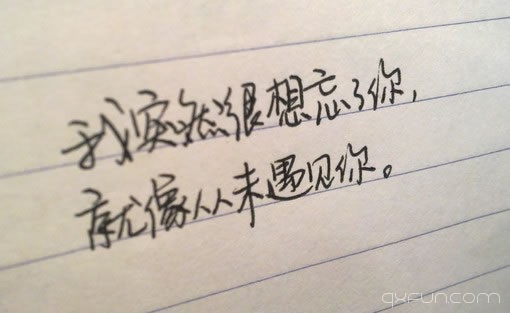 我突然很想忘了你,
就像从未遇见你。
qxfun.com